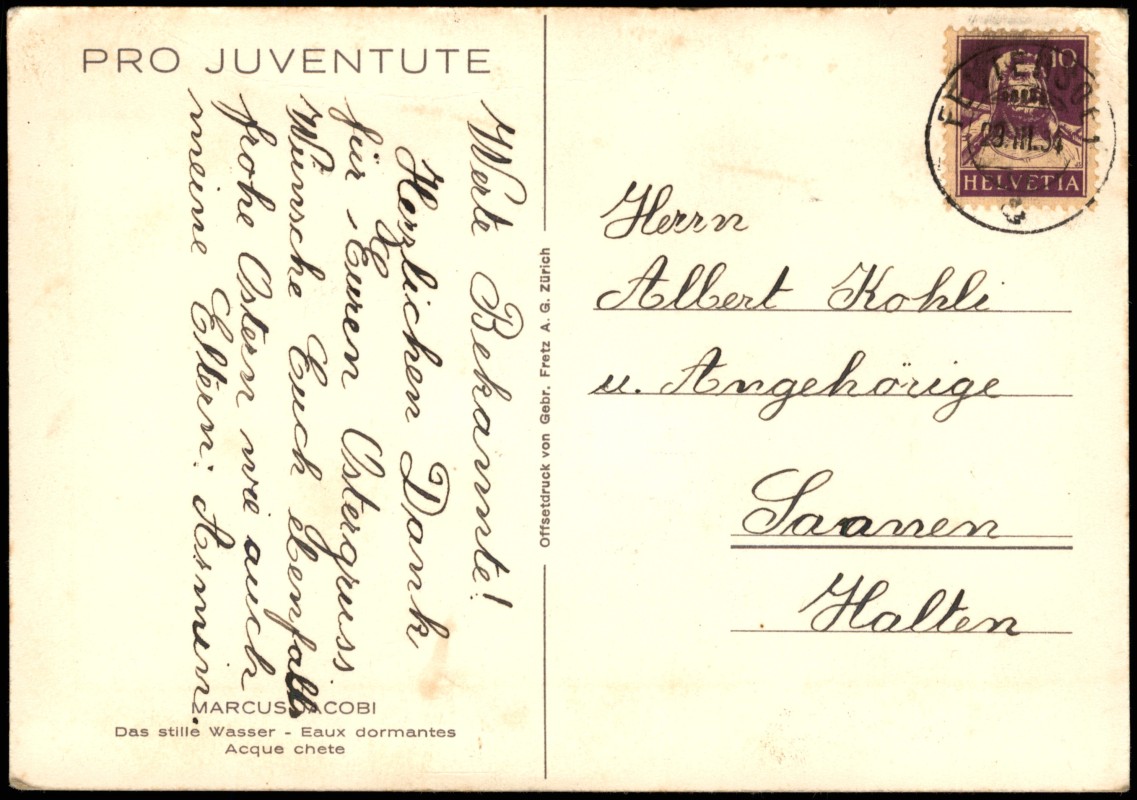 PRO JUVENTUTE
Werte Bekannte!
Herzlichen Dank
für Euren Ostergruss
Wünsche Euch Ebenfalls
frohe Ostern wie auch
meine Eltern: Armin.
MARCUS JACOBI
Das stille Wasser - Eaux dormantes
Acque chete
Offsetdruck von Gebr. Fretz A. G. Zürich
10
HELVETIA
28.III.34
Herrn
Albert Kohli
u. Angehörige
Saanen
Halten